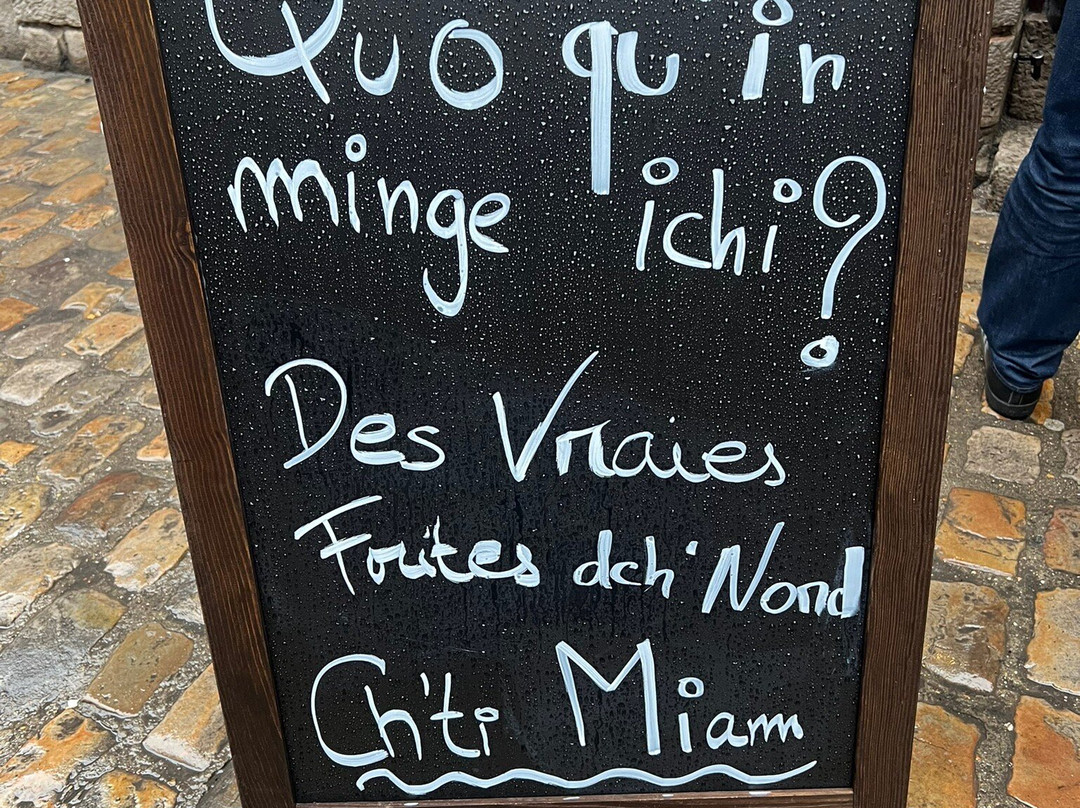 Quo qu'in
minge ichi?
Des Vraies
Frites dch'Nord
Ch'ti Miam